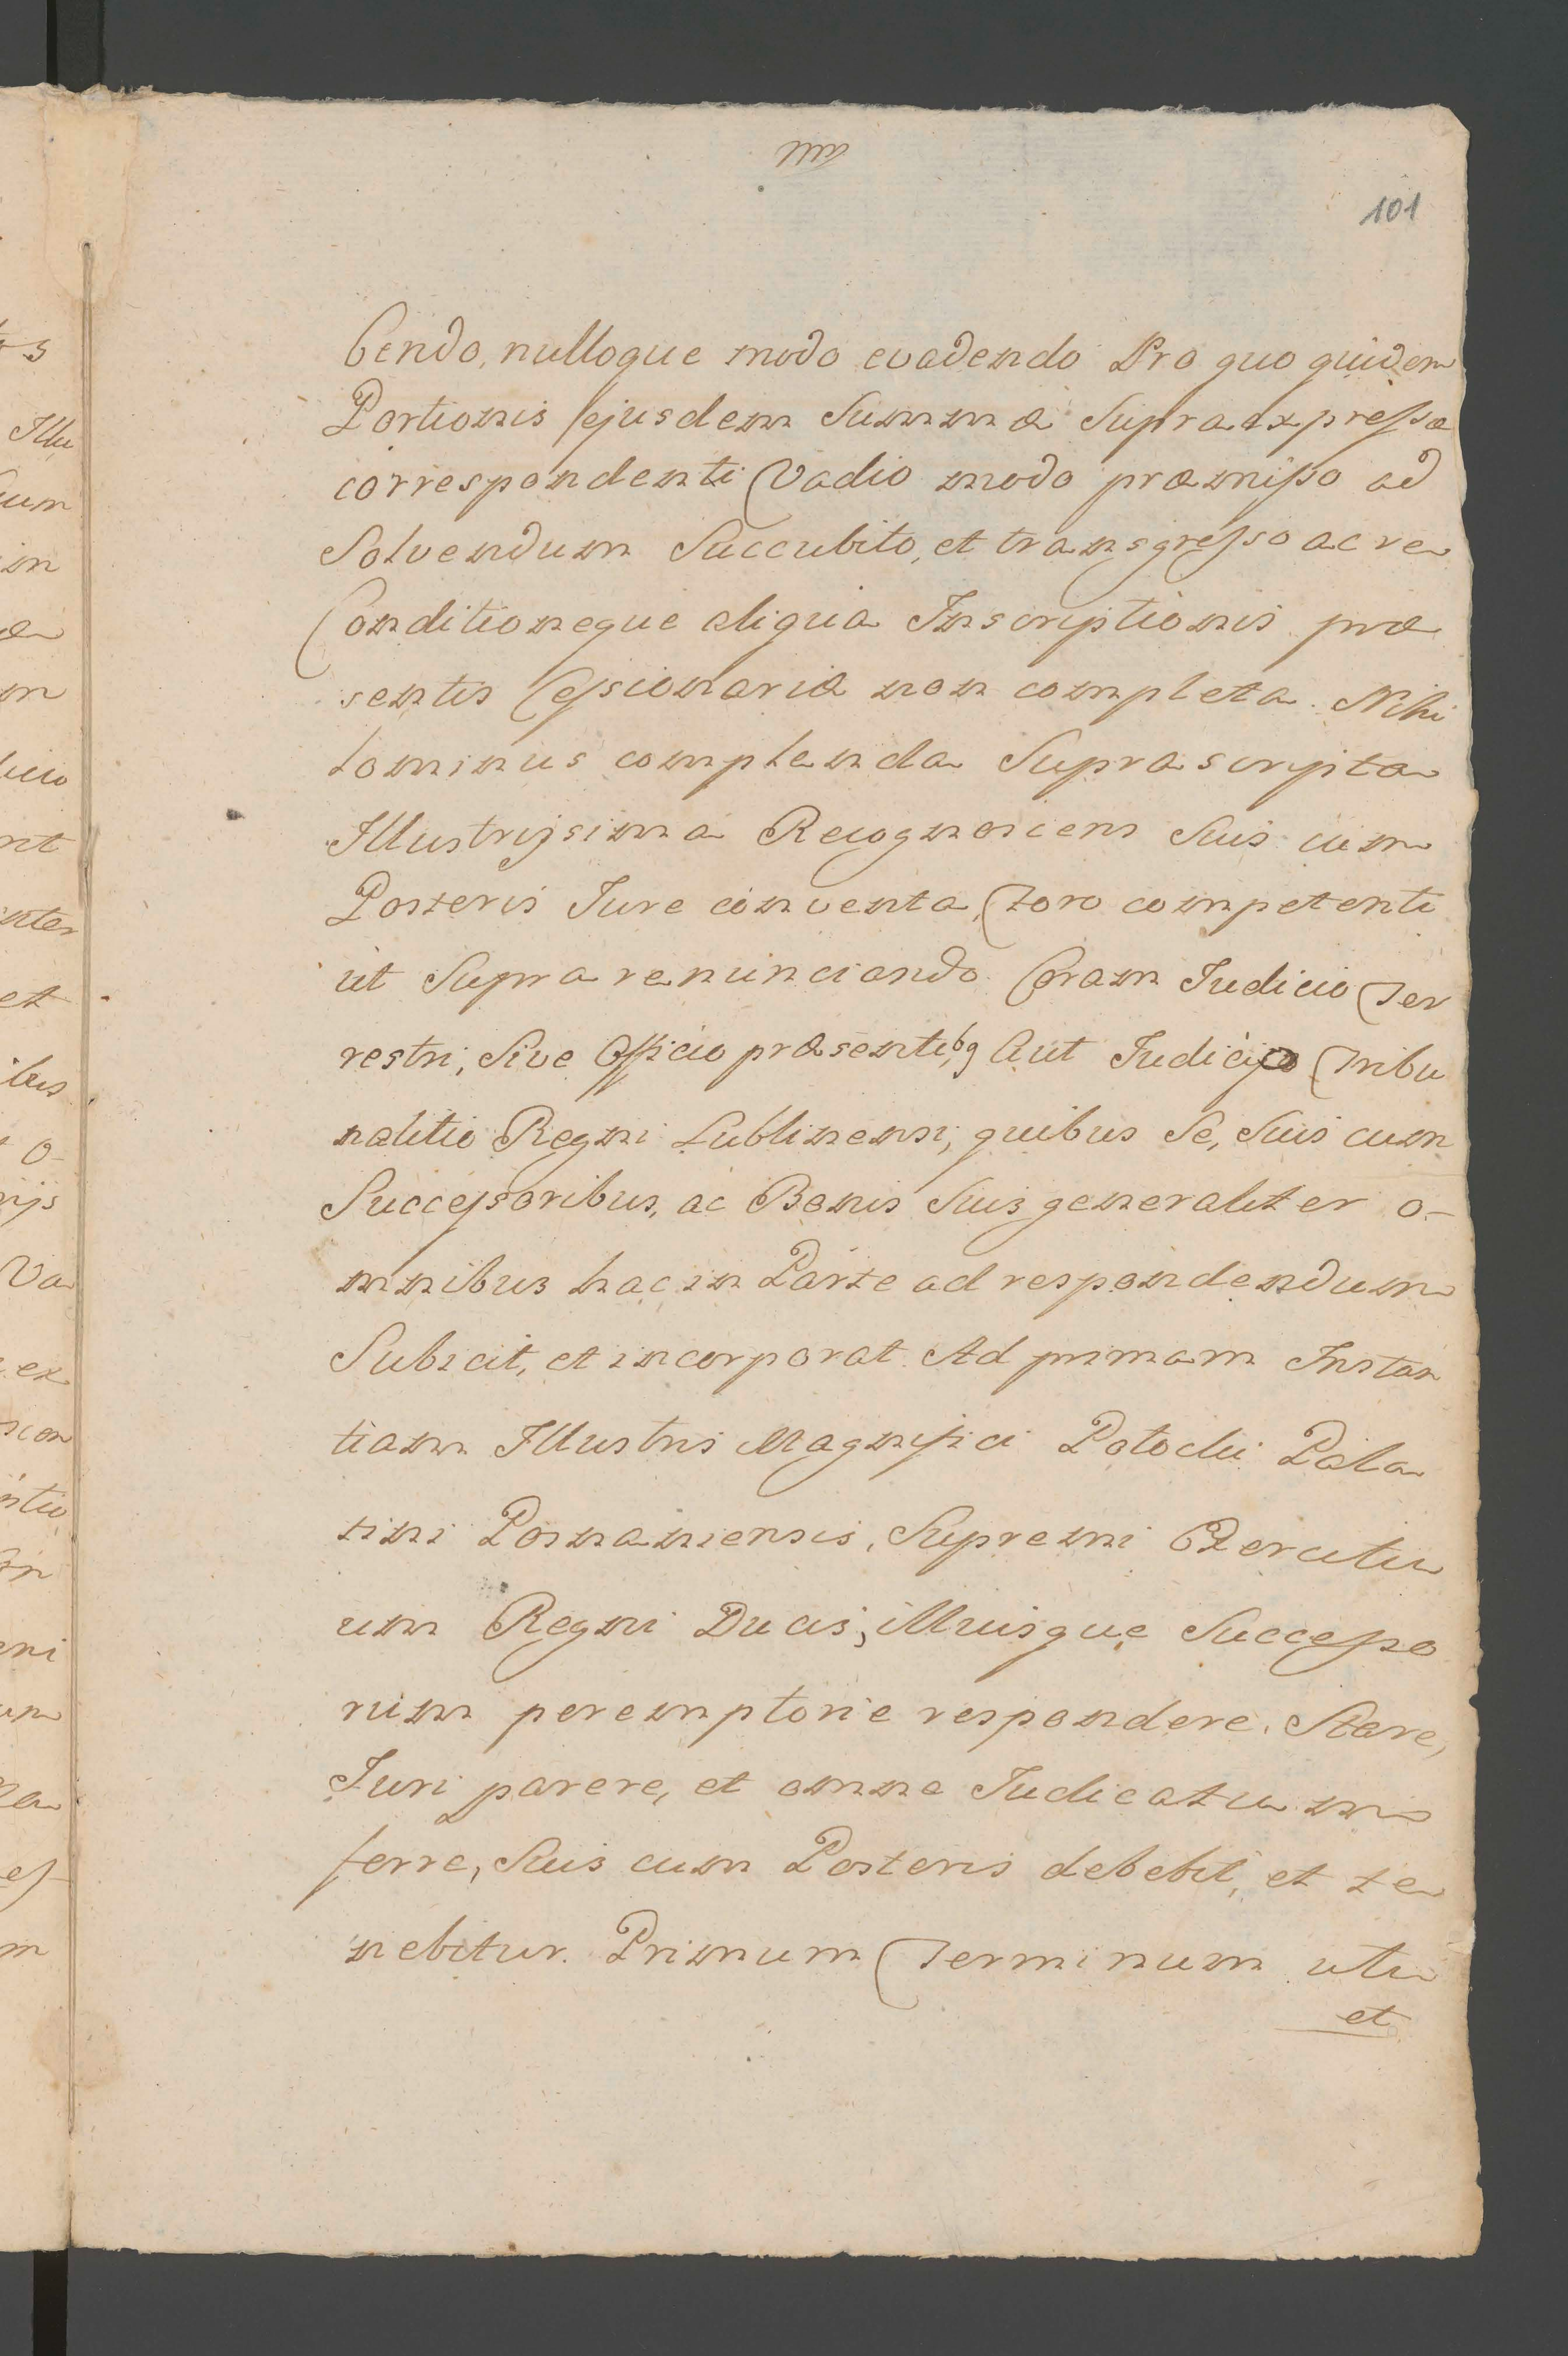 101
bendo, nulloque modo evadendo Pro quo quidem
Portionis ejusdem Summæ Supra expressæ
correspondenti Vadio modo præmisso ad
Solvendum Succubito, et transgresso ac re
Conditioneque aliqua Inscriptionis præ
sentis Cessionariæ non completa. Nihi
lominus complenda Suprascripta
Illustrissima Recognoscens Suis cum
Posteris Jure conventa, Foro competenti
ut Supra renunciando Coram Judicio Ter
restri, Sive Officio præsentibq Aut Judicijo Tribu
nalitio Regni Lublinensi, quibus Se, Suis cum
Successoribus, ac Bonis Suis generaliter o-
mnibus hac in Parte ad respondendum
Subicit, et incorporat. Ad primam Instan
tiam Illustris Magnifici Potocki Pala
tini Posnaniensis, Supremi Exercitu
um Regni Ducis, illiusque Successo
rum peremptorie respondere. Stare,
Juri parere, et omne Judicatum
ferre, Suis cum Posteris debebit, et te
nebitur. Primum Terminum uti
et